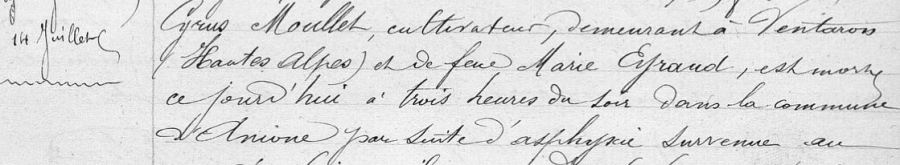 14 Juillet
Cyrus Moullet, cultivateur, demeurant à Ventavon
(Hautes Alpes) et de feue Marie Eyraud, est morte
ce jourd'hui à trois heures du soir dans la commune
d'Aniane par suite d'asphyxie survenue au